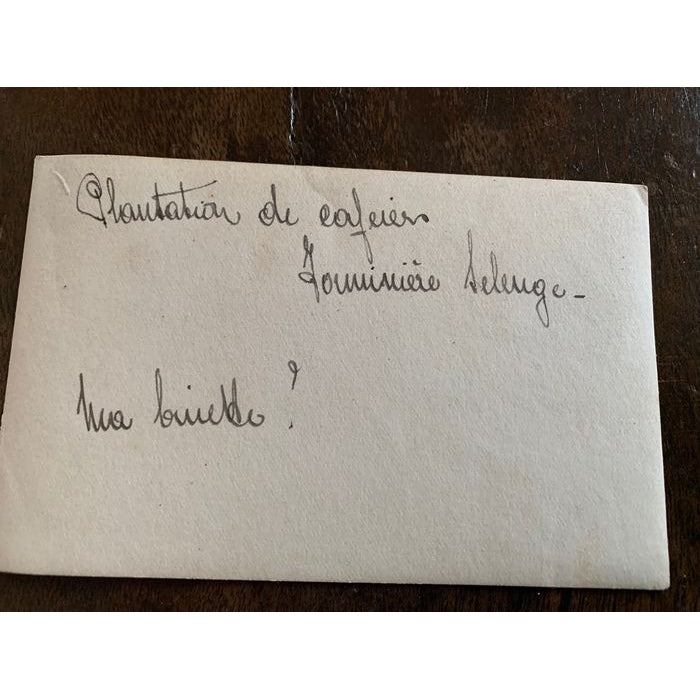 Plantation de cafeiers
Forminière Lelenge -
Ma binette !